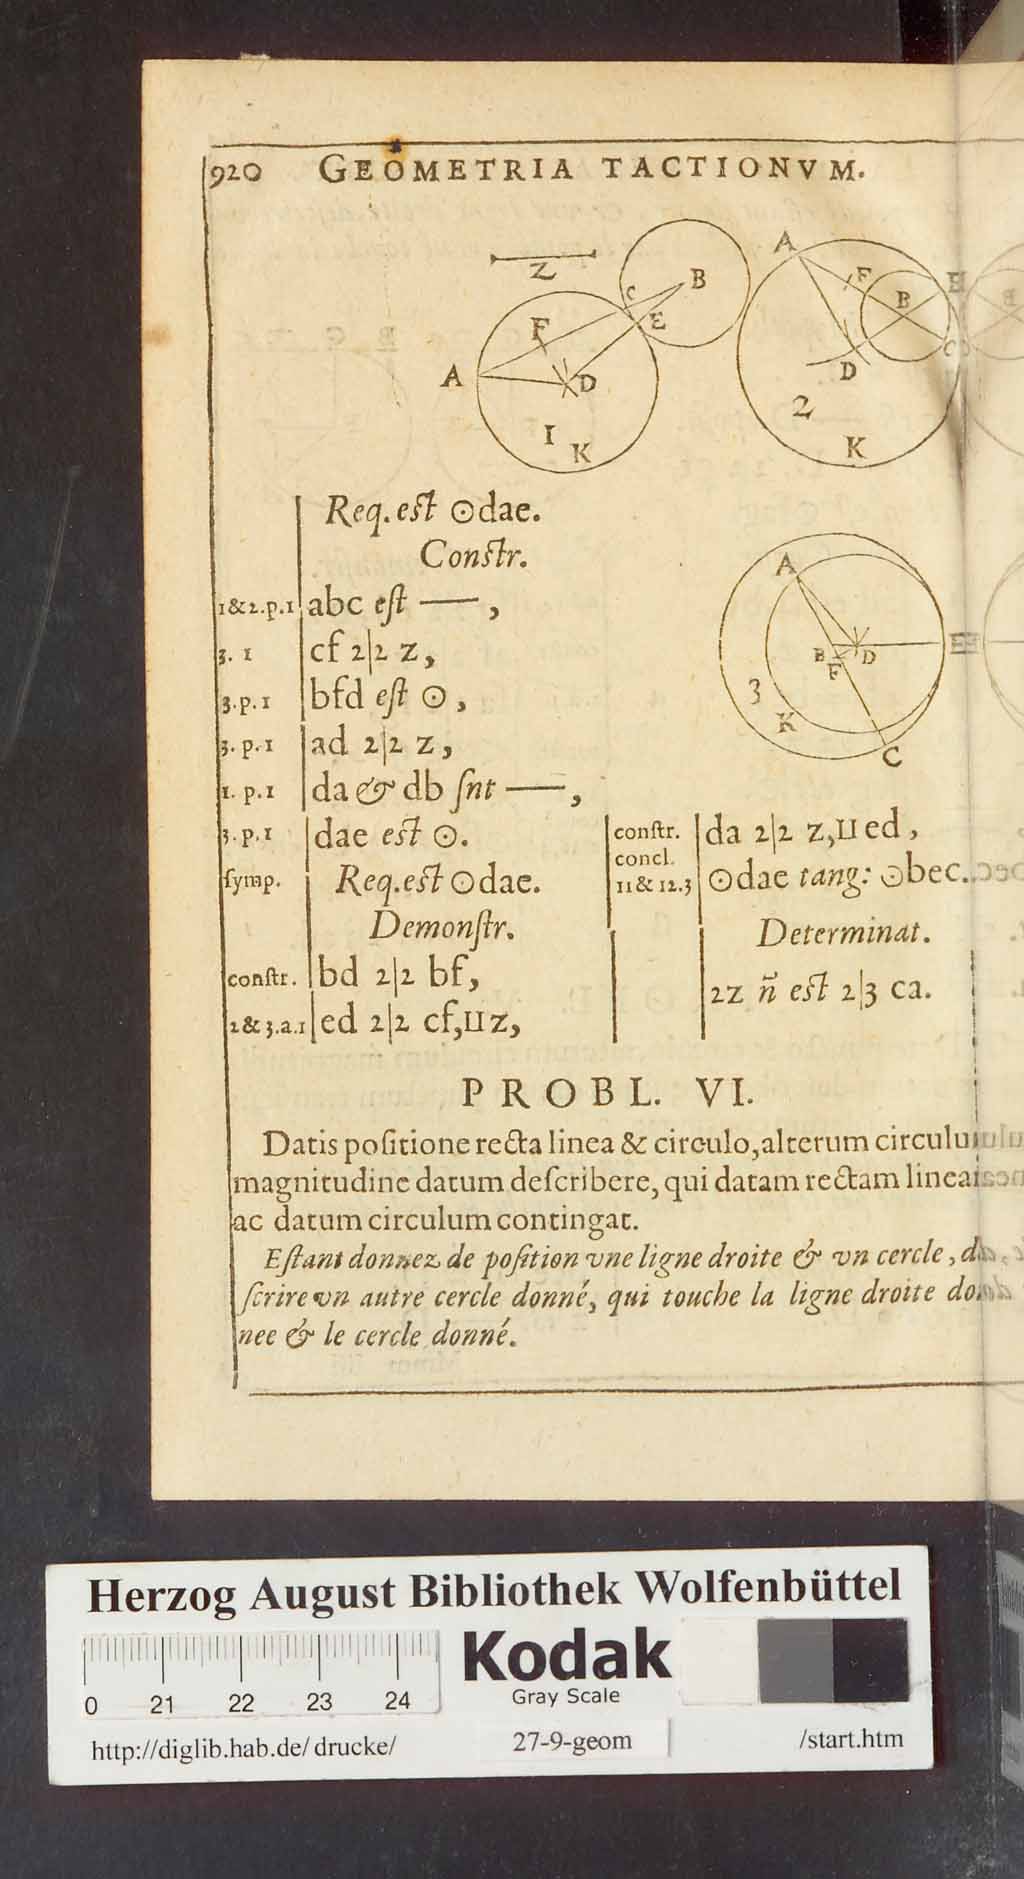 920 GEOMETRIA TACTIONVM.
Z
A B C D E F K 1
A B C D E F K 2
A B C D E F K 3
Req. est ⊙dae.
Constr.
1&2.p.1 abc est —,
3. 1 cf 2|2 z,
3.p.1 bfd est ⊙,
3. p. 1 ad 2|2 z,
1. p.1 da & db snt —,
3.p.1 dae est ⊙.
symp. Req. est ⊙dae.
Demonstr.
constr. bd 2|2 bf,
2&3.a.1 ed 2|2 cf,ΙΙz,
constr. da 2|2 z,ΙΙed,
concl.
11&12.3 ⊙dae tang: ⊙bec.
Determinat.
2z n̄ est 2|3 ca.
PROBL. VI.
Datis positione recta linea & circulo, alterum circulu
magnitudine datum describere, qui datam rectam linea
ac datum circulum contingat.
Estant donnez de position vne ligne droite & vn cercle, d
scrire vn autre cercle donné, qui touche la ligne droite do
nee & le cercle donné.
Herzog August Bibliothek Wolfenbüttel
0 21 22 23 24
Kodak
Gray Scale
http://diglib.hab.de/drucke/ 27-9-geom /start.htm